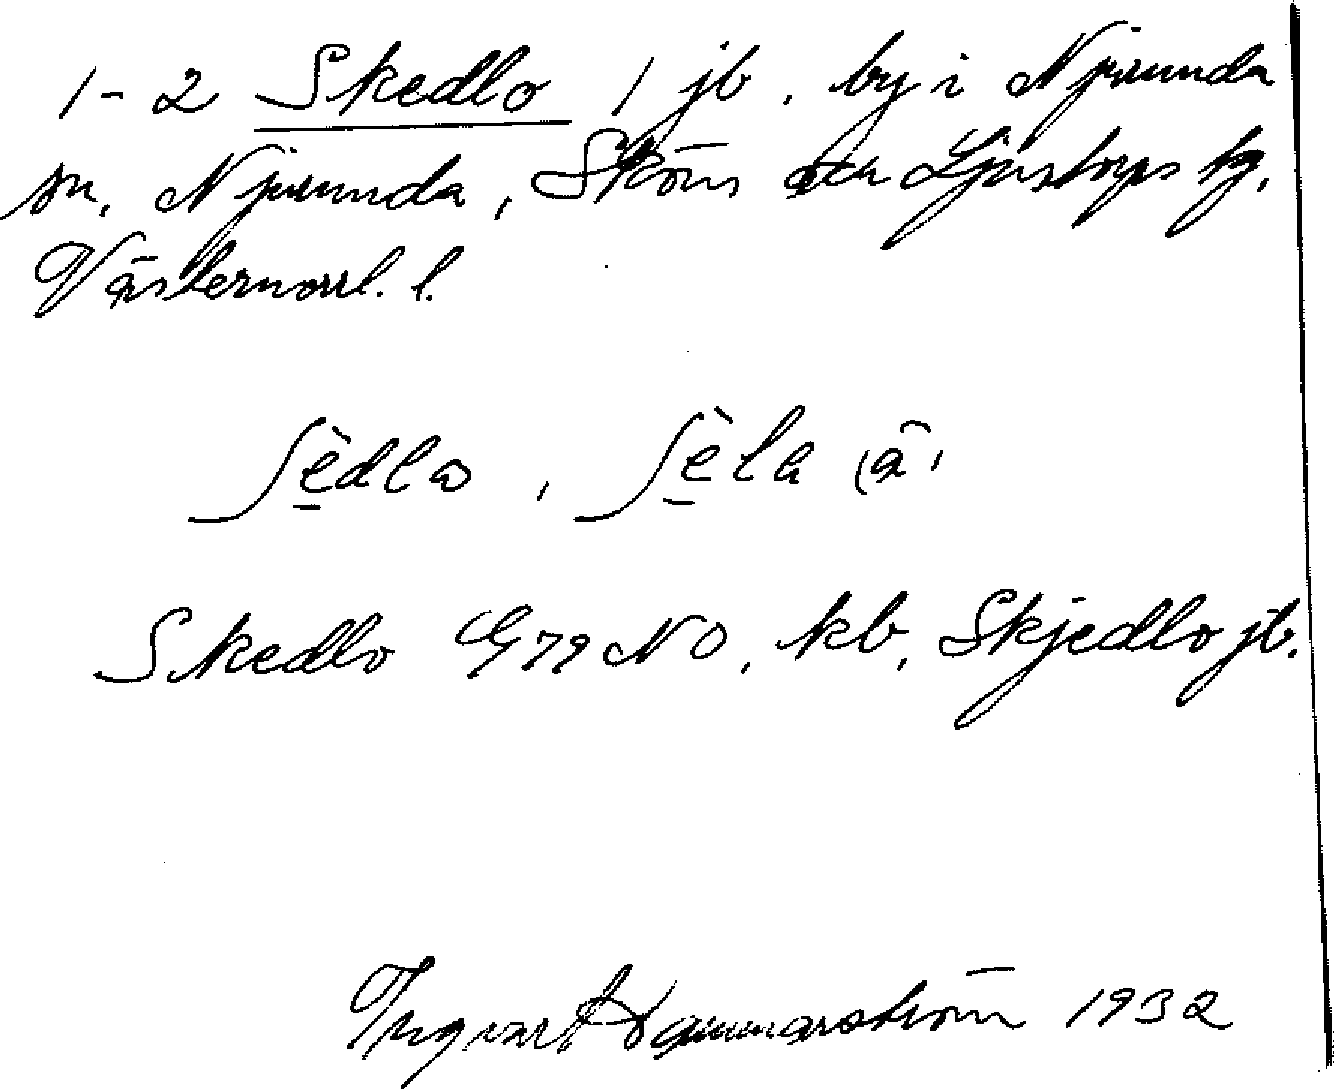 1-2 Skedlo 1 jb. by i Njurunda
sn. Njurunda, Sköns och Ljustorps tg.
Västernorrl. l.
ʃèdla, ʃèla (â)
Skedlo G 79 NO, kb, Skjedlo jb.
Ingvar Hammarström 1932